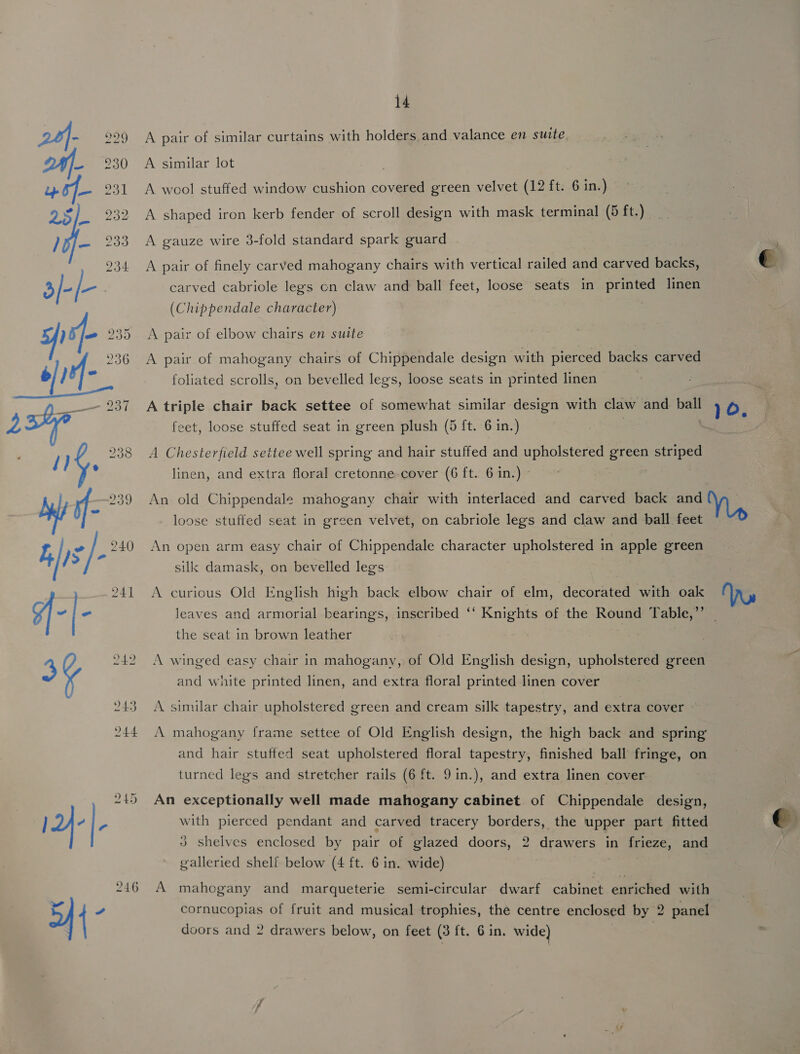 14
229 A pair of similar curtains with holders and valance en suite
230 A similar lot
231 A wool stuffed window cushion covered green velvet (12 ft. 6 in.)
232 A shaped iron kerb fender of scroll design with mask terminal (5 ft.)
233 A gauze wire 3-fold standard spark guard
234 A pair of finely carved mahogany chairs with vertical railed and carved backs,
3/-/- carved cabriole legs on claw and ball feet, loose seats in printed linen
(Chippendale character)
235 A pair of elbow chairs en suite
236 A pair of mahogany chairs of Chippendale design with pierced backs carved
foliated scrolls, on bevelled legs, loose seats in printed linen
237 A triple chair back settee of somewhat similar design with claw and ball
feet, loose stuffed seat in green plush (5 ft. 6 in.)
238 A Chesterfield settee well spring and hair stuffed and upholstered green striped
linen, and extra floral cretonne cover (6 ft. 6 in.)
239 An old Chippendale mahogany chair with interlaced and carved back and
loose stuffed seat in green velvet, on cabriole legs and claw and ball feet
240 An open arm easy chair of Chippendale character upholstered in apple green
silk damask, on bevelled legs
241 A curious Old English high back elbow chair of elm, decorated with oak
leaves and armorial bearings, inscribed “ Knights of the Round Table,”
the seat in brown leather
242 A winged easy chair in mahogany, of Old English design, upholstered green
and white printed linen, and extra floral printed linen cover
243 A similar chair upholstered green and cream silk tapestry, and extra cover
244 A mahogany frame settee of Old English design, the high back and spring
and hair stuffed seat upholstered floral tapestry, finished ball fringe, on
turned legs and stretcher rails (6 ft. 9 in.), and extra linen cover
245 An exceptionally well made mahogany cabinet of Chippendale design,
with pierced pendant and carved tracery borders, the upper part fitted
3 shelves enclosed by pair of glazed doors, 2 drawers in frieze, and
galleried shelf below (4 ft. 6 in. wide)
246 A mahogany and marqueterie semi-circular dwarf cabinet enriched with
cornucopias of fruit and musical trophies, the centre enclosed by 2 panel
doors and 2 drawers below, on feet (3 ft. 6 in. wide)